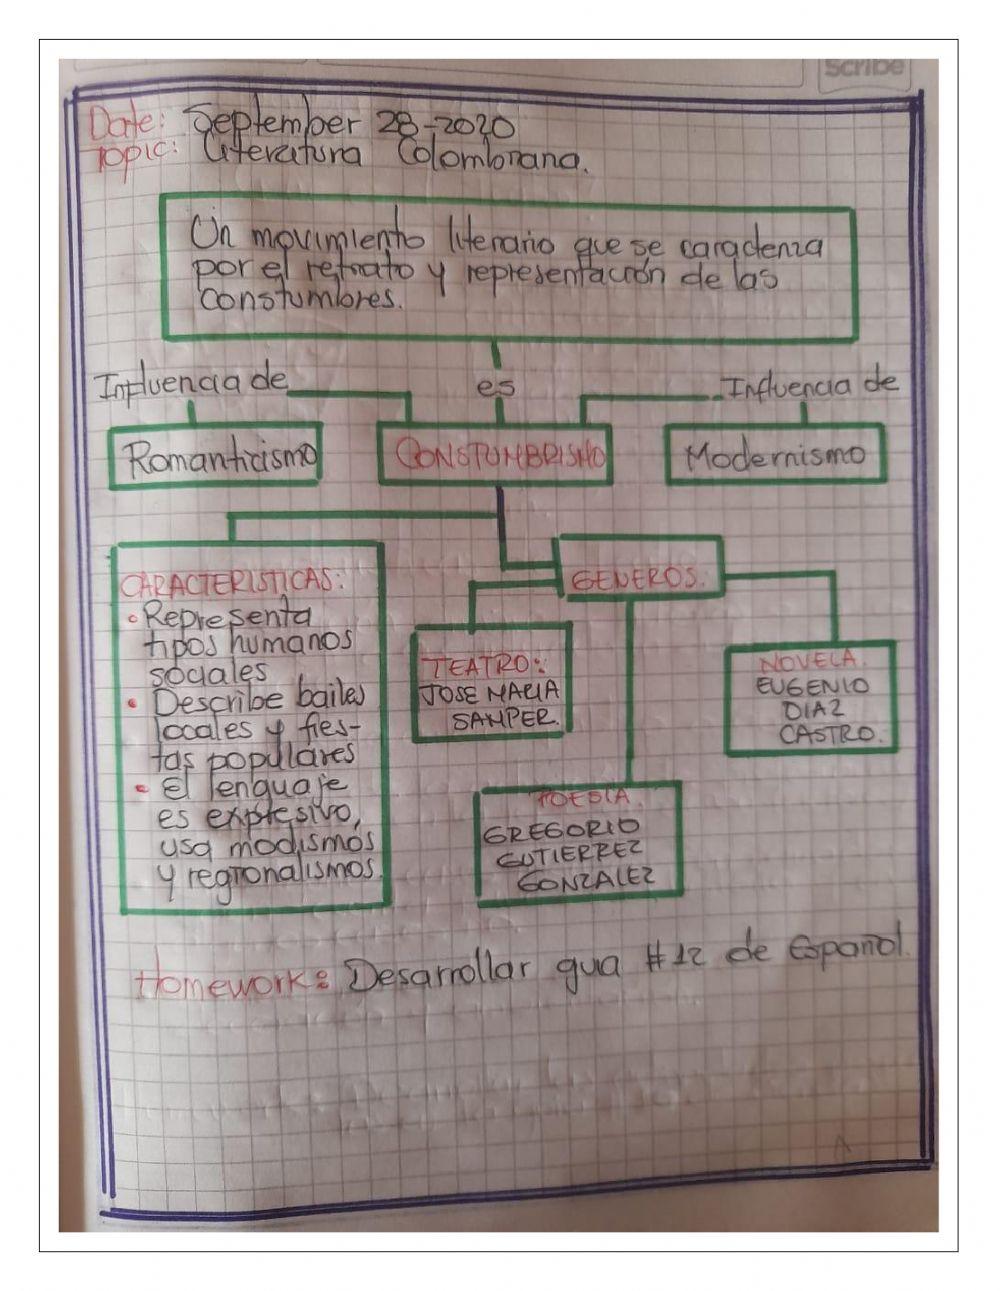 Scribe
Date: September 28-2020
Topic: Literatura Colombiana.
Un movimiento literario que se caracteriza
por el retrato y representación de las
Constumbres.
Influencia de
es
Influencia de
Romanticismo
CONSTUMBRISMO
Modernismo
CARACTERISTICAS:
• Representa
tipos humanos
sociales
• Describe bailes
locales y fies-
tas populares
• El lenguaje
es expresivo,
usa modismos
y regionalismos.
GENEROS.
TEATRO:
JOSE MARIA
SAMPER.
NOVELA.
EUGENIO
DIAZ
CASTRO.
POESIA.
GREGORIO
GUTIERREZ
GONZALEZ
Homework: Desarrollar guia #12 de Español.
A